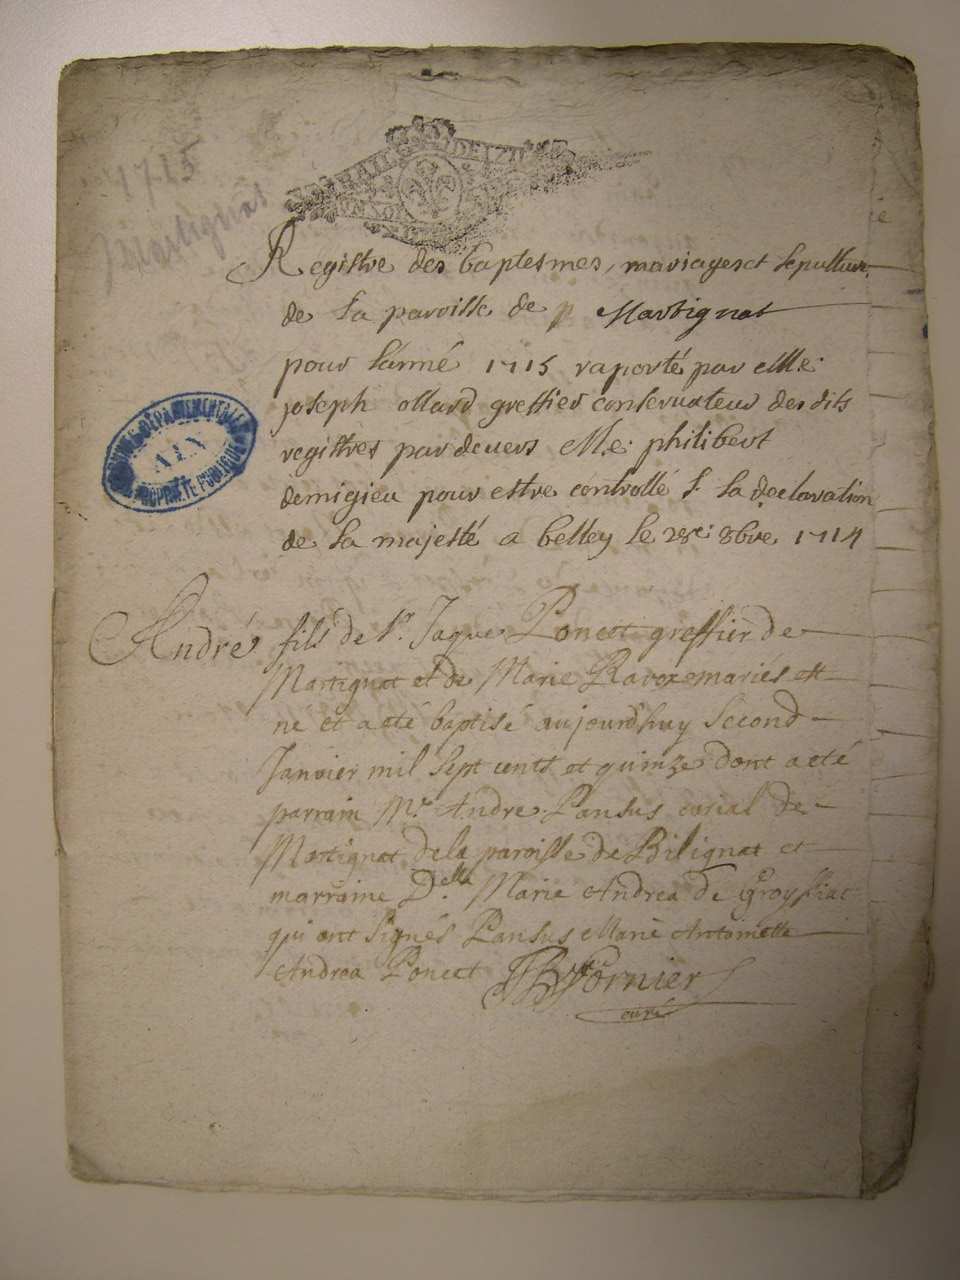 1715
Martignat
GENERALITE DE
Registre des baptesmes, mariages et sepulture
de la paroisse de Martignat
pour l'anné 1715 raporté par Me
joseph ollard greffier conservateur des dits
registres pardevers Me philibert
demigieu pour estre controllé s. la declaration
de sa majesté a belley le 28e 8bre 1714
ARCHIVES DEPARTEMENTALES
AIN
PROPRIETE PUBLIQUE
André fils de Sr. Jaque Poncet greffier de
Martignat et de Marie Ravoze mariés est
né et a eté baptisé aujourd'huy second
Janvier mil sept cents et quinze dont a eté
parrain Mr. Andre Pansus curial de
Martignat de la paroisse de Bilignat et
marraine Delle. Marie Andrea de Groyssiat
qui ont signés Pansus Marie Antoinette
Andrea Poncet Fornier
curé